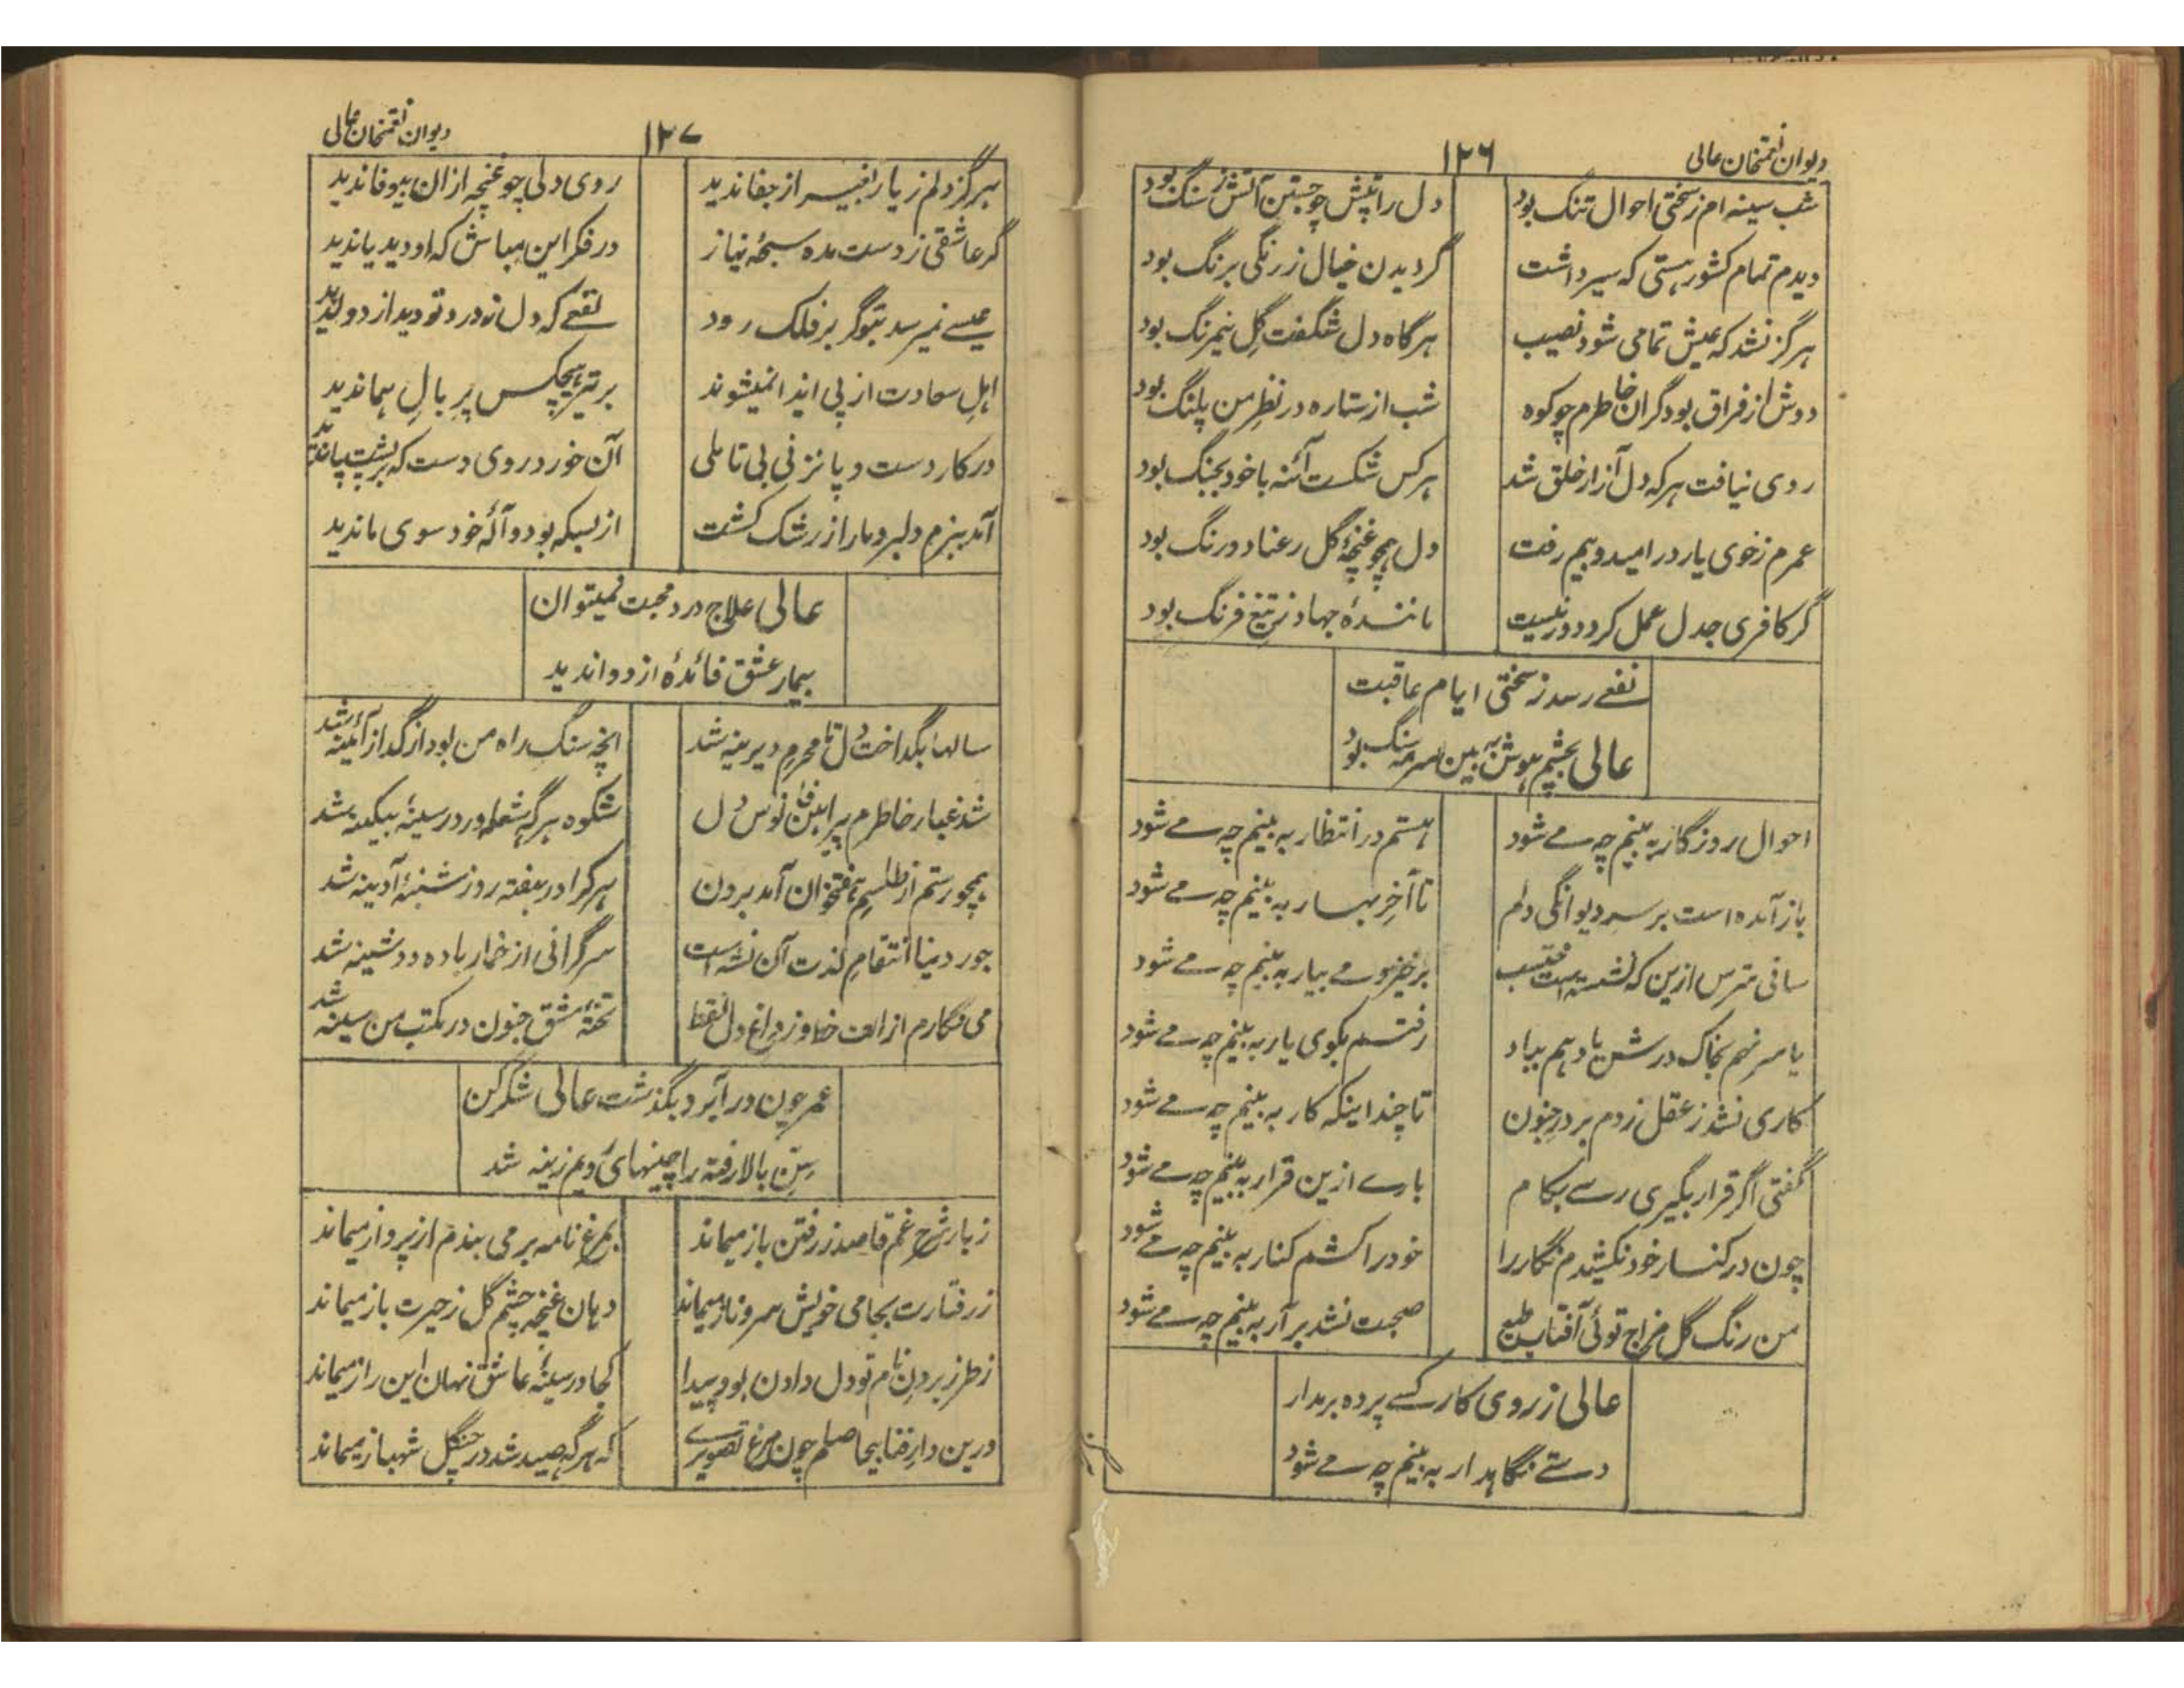 دیوان نعمتخان عالی
۱۲۶
شب سینه ام ز سختی احوال تنگ بود
دل را تپش چو جستن آتش ز سنگ بود
دیدم تمام کشور هستی که سیر داشت
گردیدن خیال ز رنگی برنگ بود
هرگز نشد که عیش تمامی شود نصیب
هرگاه دل شگفت گل نیمرنگ بود
دوش از فراق بود گران خاطرم چو کوه
شب از ستاره در نظر من پلنگ بود
روی نیافت هرکه دل آزار خلق شد
هرکس شکست آئنه با خود بجنگ بود
عمرم ز خوی یار در امید و بیم رفت
دل همچو غنچهٔ گل رعنا دو رنگ بود
گر کافری جدل عمل کرد دور نیست
مانندهٔ جهاد تیغ فرنگ بود
نفعے رسد ز سختی ایام عاقبت
عالی بچشم هوش به بین سرمه سنگ بود
احوال روزگار به بینم چه مے شود
هستم در انتظار به بینم چه مے شود
باز آمده است بر سر دیوانگی دلم
تا آخر بهار به بینم چه مے شود
ساقی مترس ازین که نشسته است محتسب
برخیز و مے بیار به بینم چه مے شود
یا سر نهم بخاک درش یا دهم بباد
رفتم بکوی یار به بینم چه مے شود
کاری نشد ز عقل زدم بر در جنون
تا چند اینکه کار به بینم چه مے شود
گفتی اگر قرار بگیری رسے بکام
بارے ازین قرار به بینم چه مے شود
چون در کنار خود نکشیدم نگار را
خود را کشم کنار به بینم چه مے شود
من رنگ گل مزاج توئی آفتاب طبع
صحبت نشد برآر به بینم چه مے شود
عالی ز روی کار کسے پرده بر مدار
دستے نگاهدار به بینم چه مے شود
دیوان نعمتخان عالی
۱۲۷
هرگز دلم ز یار بغیر از جفا ندید
روی دلی چو غنچه ازان بیوفا ندید
گر عاشقی ز دست مده سبحهٔ نیاز
در فکر این مباش که او دید یا ندید
عیسے نمیرسد بتو گر بر فلک رود
نفعے که دل ز درد تو دید از دوا ندید
اهل سعادت از پی ایذا نمیشوند
بر تیر هیچکس پر بال هما ندید
در کار دست و پا نزنی بی تاملی
آن خورد روی دست که بر پشت پا ندید
آمد ببزم دلبر و مارا ز رشک کشت
از بسکه بود وآلهٔ خود سوی ما ندید
عالی علاج درد محبت نمیتوان
بیمار عشق فائدهٔ از دوا ندید
سالها بگداخت دل تا محرم دیرینه شد
انچه سنگ راه من بود از گداز آئینه شد
شد غبار خاطرم پیراهن فانوس دل
شکوه هرگه شعله ور در سینهٔ بیکینه شد
همچو رستم از طلسم هفتخوان آمد برون
هرکرا در هفته روز شنبهٔ آدینه شد
جور دنیا انتقام لذت آن نشه است
سرگرانی از خمار باده دوشینه شد
می نگارم از الف خط وز داغ دل نقط
تختهٔ مشق جنون در مکتب من سینه شد
عمر چون در آبرد بگذشت عالی شکر کن
سن بالا رفته را چینهای رویم زینه شد
ز بار شرح غم قاصد ز رفتن باز میماند
بمرغ نامه بر می بندم از پرواز میماند
ز رفتارت بجامی خویش سرو ناز میماند
دهان غنچه چشم گل ز حیرت باز میماند
ز طرز بردن نام تو دل دادن بود پیدا
کجا در سینهٔ عاشق نهان این راز میماند
درین دار فنا بیحاصلم چون مرغ تصویرے
که هرگه صید شد در چنگل شهباز میماند